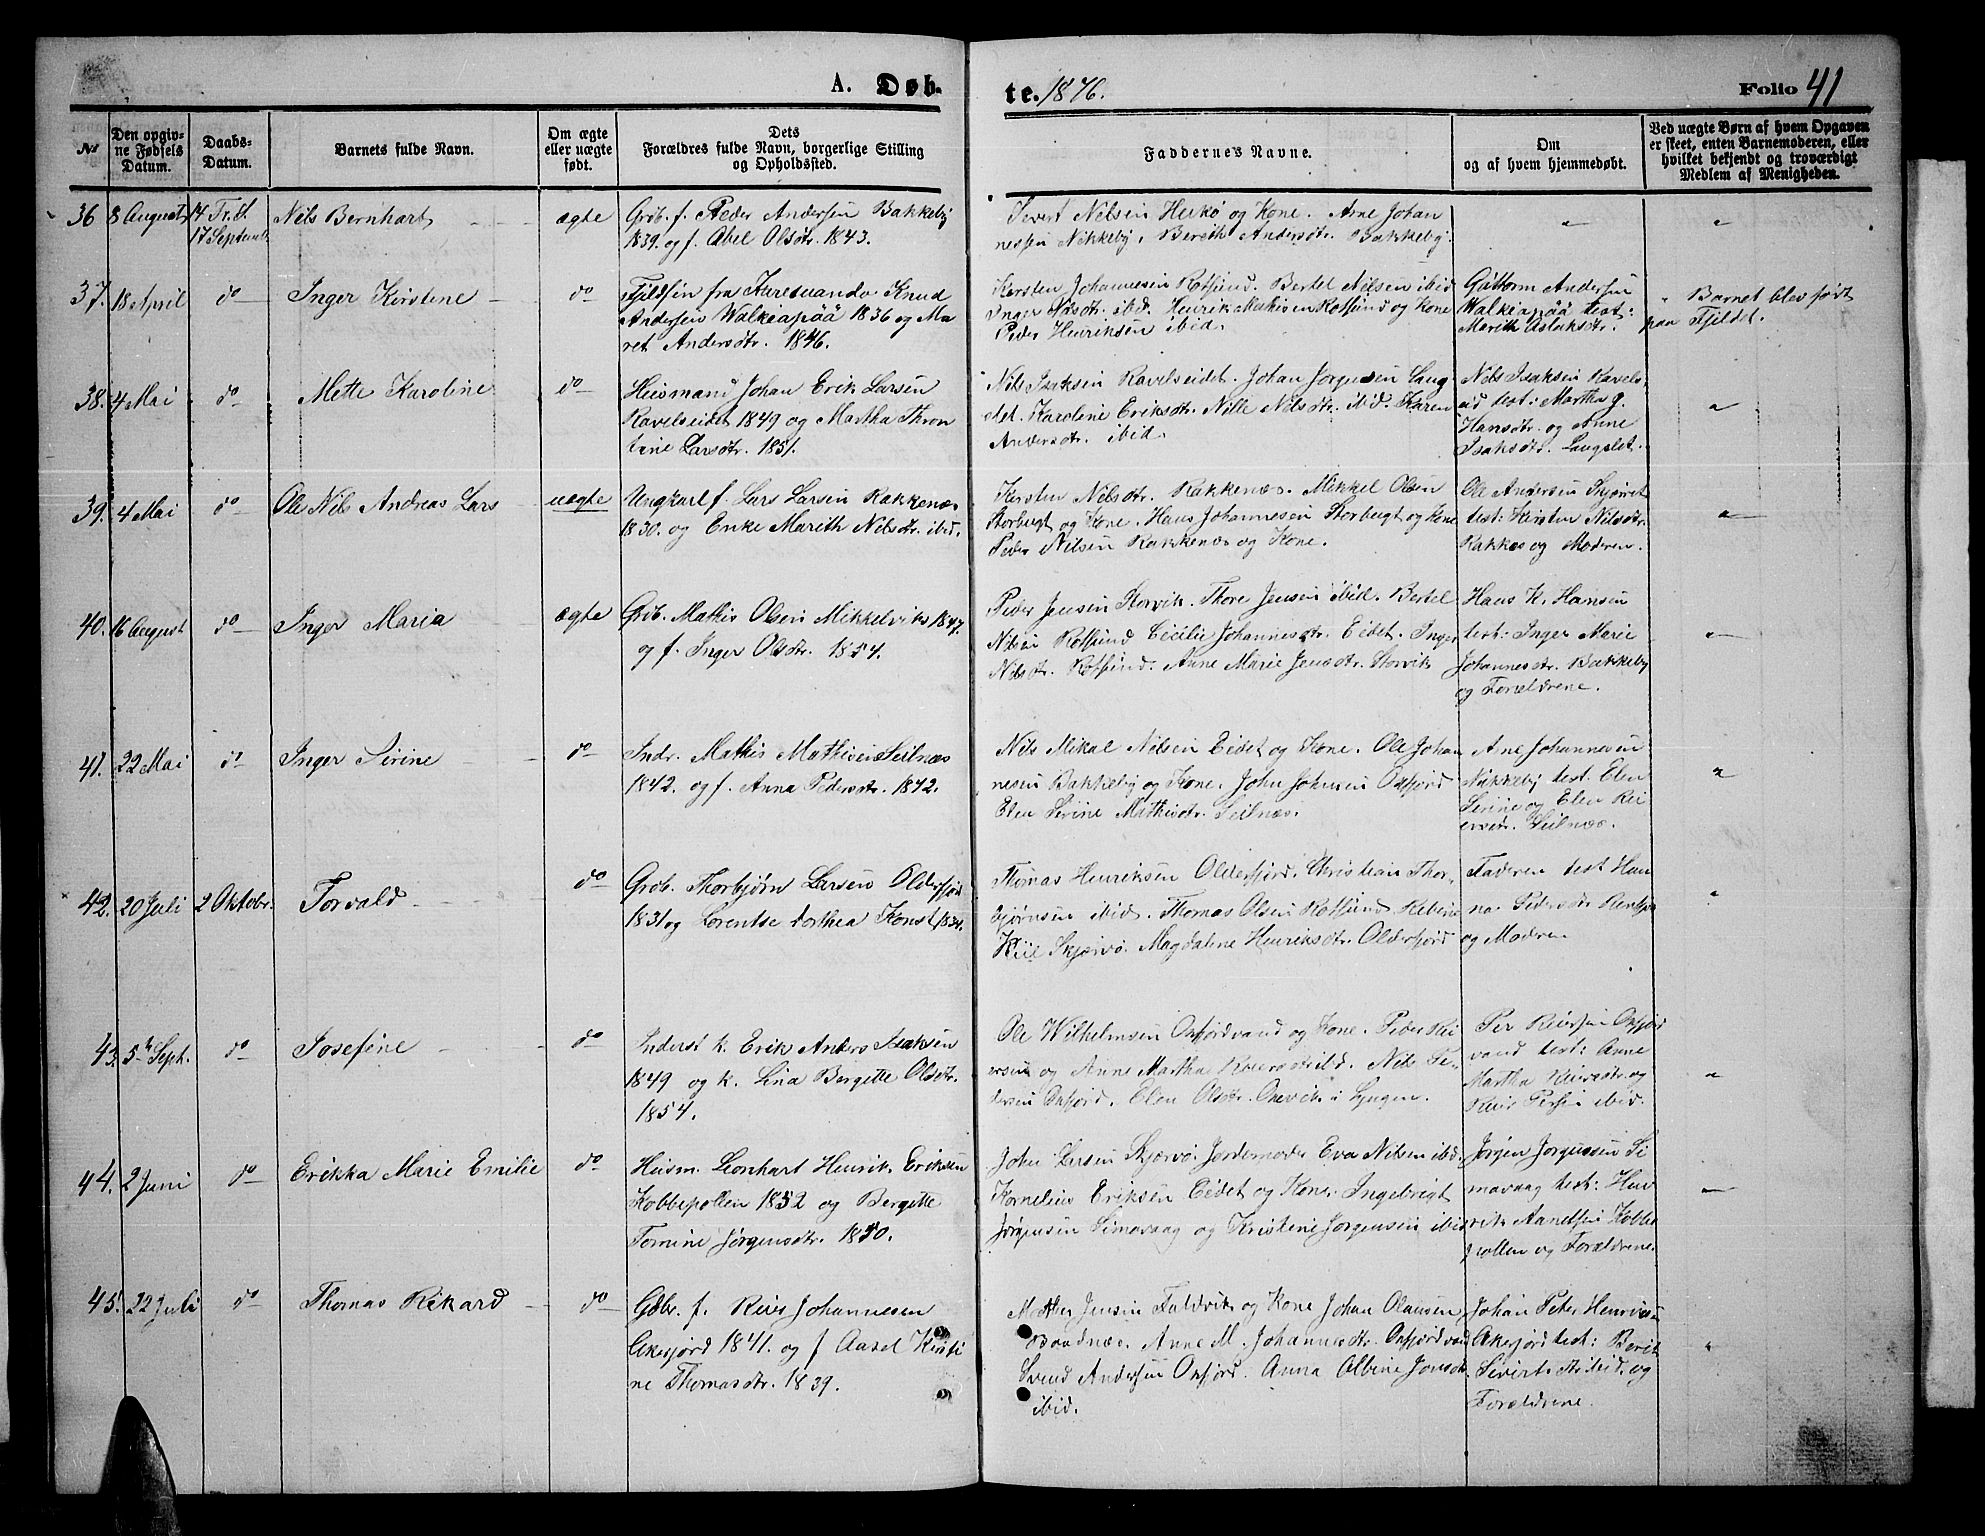 A. Døb-
te. 1876.
Folio 41
No
Den opgiv-
ne Fødsels
Datum.
Daabs-
Datum.
Barnets fulde Navn.
Om ægte
eller uægte
født.
Dets
Forældres fulde Navn, borgerlige Stilling
og Opholdssted.
Faddernes Navne.
Om
og af hvem hjemmedøbt.
Ved uægte Børn af hvem Opgaven
er skeet, enten Barnemoderen, eller
hvilket bekjendt og troværdigt
Medlem af Menigheden.
36 8 August 14 Tr. S.
17 Septemb.
Nils Bernhart
ægte
Grb. f. Peder Andersen Bakkeby
1839. og f. Abel Olsdtr. 1843.
Sivert Nilsen Heikø og Kone. Arne Johan
nessen Nikkeby, Bereth Andersdtr. Bakkeby.
"
"
37. 18 April do
Inger Kirstine
do
Fjeldfin fra Karesuando Knud
Andersen Walkeapää 1836 og Ma
ret Andersdtr. 1846.
Kersten Johannesen Rotsund. Bertel Nilsen ibid
Inger ibid. Henrik Mathisen Rotsund og Kone
Peder Henriksen ibid.
Guttorm Andersen
Walkeapää test:
Marith Aslaksdtr.
" Barnet blev født
paa Fjeldet.
38. 4 Mai do
Mette Karoline
do
Huusmand Johan Erik Larsen
Ravelseidet 1849 og Martha Thron
tine Larsdtr. 1851.
Nils Isaksen Ravelseidet. Johan Jørgensen Laug
slet. Karoline Eriksdtr. Nille Nilsdtr. ibid. Karen
Andersdtr. ibid.
Nils Isaksen Ravels-
eid test: Martha J.
Hansdtr. og Anne
Isaksdtr. Laugslet.
"
39. 4 Mai do
Ole Nils Andreas Lars
uægte
Ungkarl f. Lars Larsen Rakkenæs
1830. og Enke Marith Nilsdtr. ibid.
Kirsten Nilsdtr. Rakkenæs. Mikkel Olsen
Storbugt og Kone. Hans Johannesen Storbugt og Kone
Peder Nilsen Rakkenæs og Kone.
Ole Andersen Skjøret
test: Kirsten Nilsdtr.
Rakkes og Moderen.
"
40. 16 August do
Inger Maria
ægte
Grb. Mathis Olsen Mikkelvik 1847.
og f. Inger Olsdtr. 1854.
Peder Jensen Storvik. Thore Jensen ibid. Bertel
Nilsen Rotsund Cicilie Johannesdtr. Eidet. Inger
Nilsdtr. Rotsund. Anne Marie Jensdtr. Storvik
Hans K. Hansen
test: Inger Marie
Johannesdtr. Bakkeby
og Forældrene.
"
41. 22 Mai do
Inger Sirine
do
Indr. Mathis Mathisen Seilnæs
1842. og f. Anna Pedersdtr. 1842.
Nils Mikal Nilsen Eidet og Kone. Ole Johan
nesen Bakkeby og Kone. John Johnsen Oxfjord
Elen Serine Mathisdtr. Seilnæs.
Arne Johannesen
Nikkeby test. Elen
Serine og Elen Rei
ersdtr. Seilnæs.
"
42. 20 Juli 2 Oktobr.
Torvald
do
Grb. Thorbjørn Larsen Olderfjord
1831 og Lorentse Dorthea Konst. 1834.
Thomas Henriksen Olderfjord. Christian Thor-
bjørnsen ibid. Thomas Olsen Rotsund Rebine
Kiil Skjærvø. Magdaline Henriksdtr. Olderfjord
Faderen test Han
na Pedersdtr
og Moderen
"
43. 5te Sept. do
Josefine
do
Inderst k. Erik Anders Isaksen
1849 og k. Lina Bergitte Olsdtr.
1854.
Ole Wilhelmsen Oxfjordvand og Kone. Peder Rei
ersen og Anne Martha Reiersdtr ibid. Nils Pe-
dersen Oxfjord. Elen Olsdtr. i Lyngen.
Per Reiersen Oxfjord
vand test: Anne
Martha Reiersdtr. og
Reier Persen ibid.
"
44. 2 Juni do
Erikka Marie Emilie
do
Huusm. Leonhart Henrik Eriksen
Kobbepollen 1852 og Bergitte
Tomine Jørgensdtr. 1850.
John Larsen Skjærvø. Jordemoder Eva Nilsen ibid.
Kornelius Eriksen Eidet og Kone. Ingebrigt
Jørgensen Simavaag og Kristine Jørgensen ibid
Jørgen Jørgensen Si
mavaag test: Hen
rik Kobbe
pollen og Forældrene.
"
45. 22 Juli do
Thomas Rikard
do
Gbr. f. Reier Johannesen
Akefjord 1841. og f Aasel Kirsti
ne Thomasdtr. 1839.
Jensen og Kone Johan Olausen
Baadnæs. Anne M. Johannesdtr. Oxfjordvand
Svend Andersen Oxfjord. Anna Albine Jonsdtr
ibid.
Johan Peter Henriksen
Akefjord test: Berit
Sivertsdtr ibid. og
Forældrene.
"